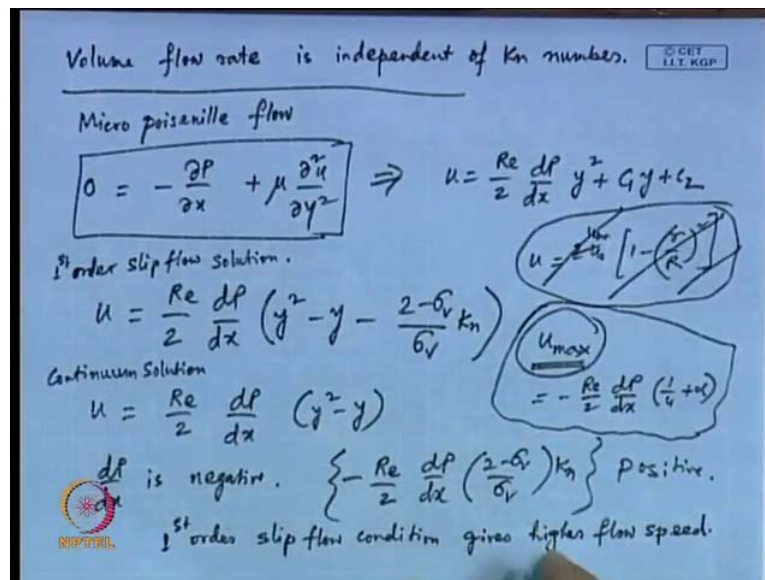 Volume flow rate is independent of Kn number.
© CET
I.I.T. KGP
Micro poisenille flow
0 = - ∂P/∂x + μ ∂²u/∂y² ⇒ u = Re/2 dP/dx y² + C₁y + C₂
u = [1 - (r/R)²]
1st order slip flow solution.
u = Re/2 dP/dx (y² - y - (2-σᵥ)/σᵥ Kn)
umax
= - Re/2 dP/dx (1/4 + α)
Continuum Solution
u = Re/2 dP/dx (y² - y)
dP/dx is negative. {- Re/2 dP/dx ((2-σᵥ)/σᵥ) Kn} Positive.
1st order slip flow condition gives higher flow speed.
NPTEL